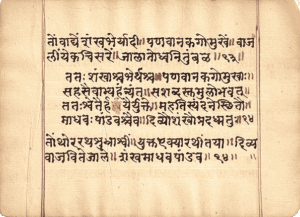 तों वाद्यें शंखभेर्यादी ॥ पणवानकगोमुखें ॥ वाज
लीं येकचिसरें ॥ जाला तो ध्वनि तुंबळ ॥१३॥
ततः शंखाश्च भेर्यश्च ॥ पणवानकगोमुखाः ॥
सहसैवाभ्यहन्यंत ॥ सशब्दस्तुमुलोभवत् ॥
ततः श्वेतैर्हयैर्युक्ते ॥ महतिस्यंदनेस्थितौ ॥
माधवः पांडवश्चैव ॥ दिव्यौशंखौप्रदध्मतुः ॥१४
तों थोर रथ शुभ्राश्वीं ॥ युक्त एक्या रथीं तया ॥ दिव्य
वाजविते जाले ॥ शंख माधव पांडव ॥१४॥